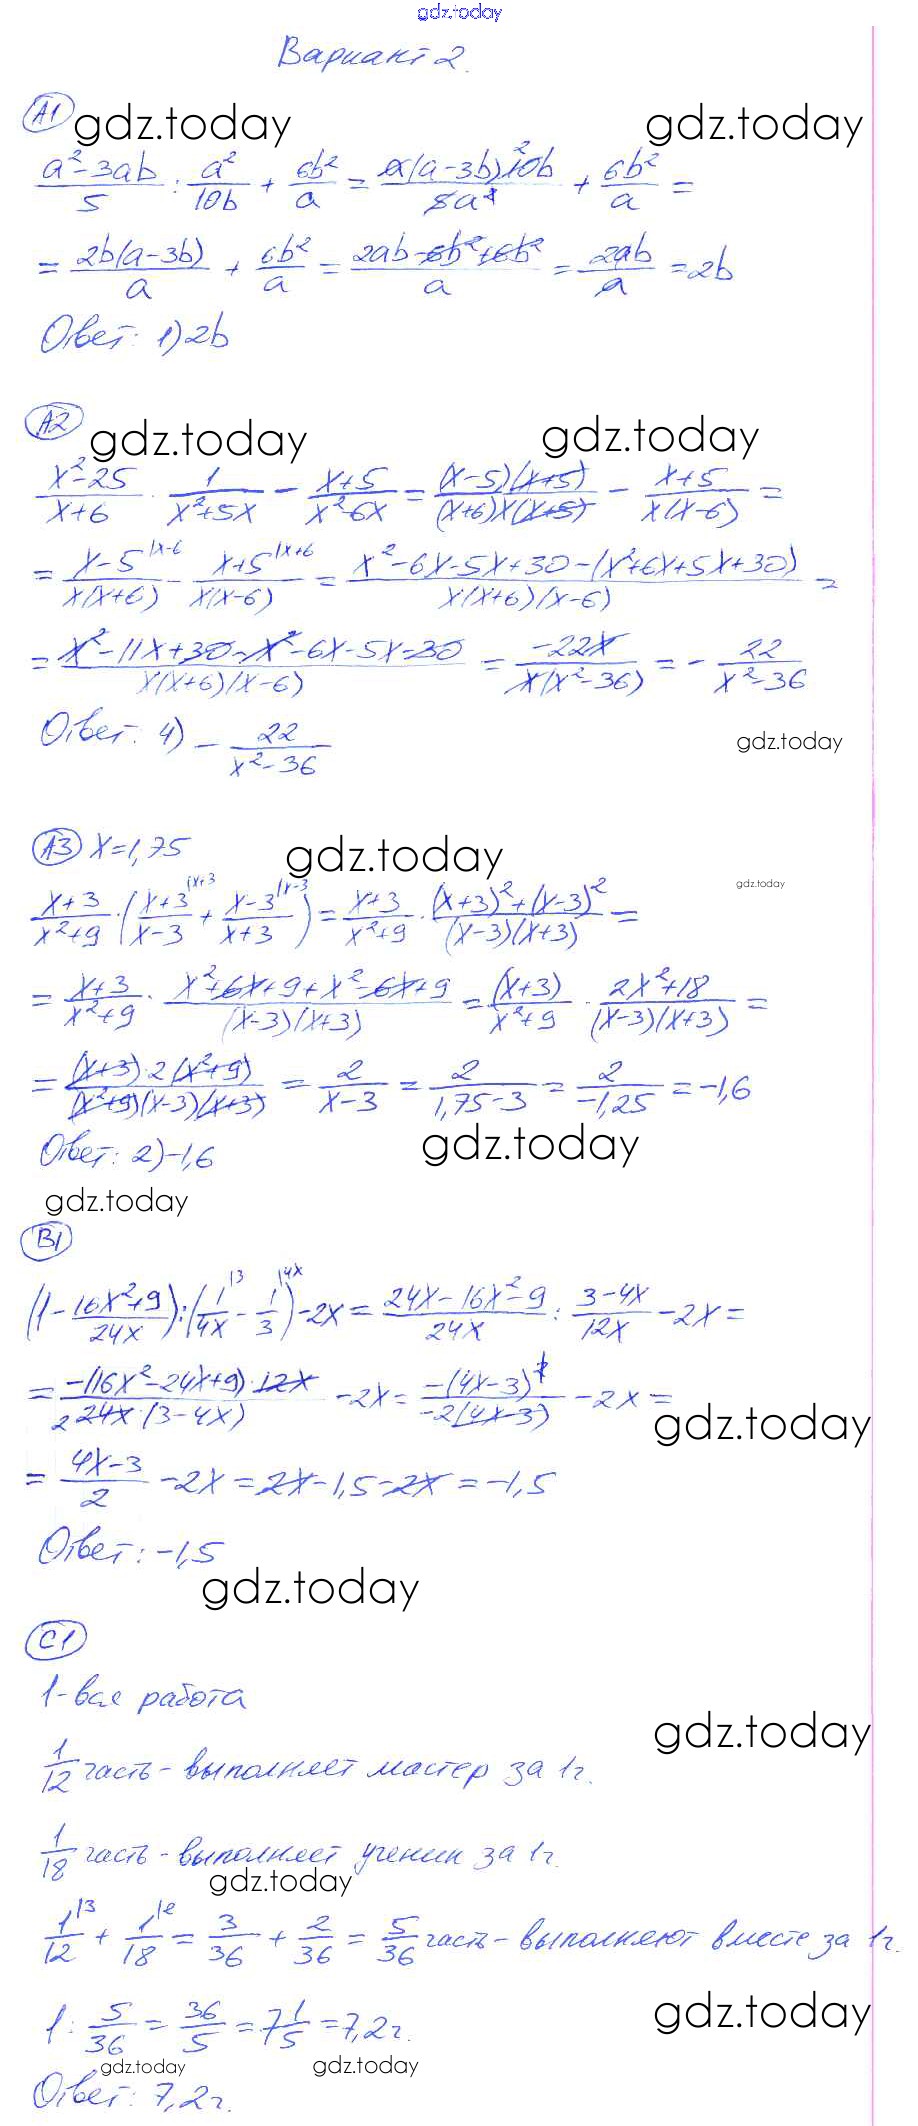 gdz.today
Вариант 2.
А1
gdz.today gdz.today
(a²-3ab)/5 : a²/(10b) + 6b²/a = (a(a-3b)·10b)/(5a²) + 6b²/a =
= 2b(a-3b)/a + 6b²/a = (2ab-6b²+6b²)/a = 2ab/a = 2b
Ответ: 1) 2b
А2
gdz.today gdz.today
(x²-25)/(x+6) · 1/(x²+5x) - (x+5)/(x²-6x) = ((x-5)(x+5))/((x+6)x(x+5)) - (x+5)/(x(x-6)) =
= (x-5)/(x(x+6)) |x-6 - (x+5)/(x(x-6)) |x+6 = (x²-6x-5x+30-(x²+6x+5x+30))/(x(x+6)(x-6)) =
= (x²-11x+30-x²-6x-5x-30)/(x(x+6)(x-6)) = (-22x)/(x(x²-36)) = - 22/(x²-36)
Ответ: 4) - 22/(x²-36)
gdz.today
А3 x=1,75
gdz.today
gdz.today
(x+3)/(x²+9) · ((x+3)/(x-3) |x+3 + (x-3)/(x+3) |x-3) = (x+3)/(x²+9) · ((x+3)²+(x-3)²)/((x-3)(x+3)) =
= (x+3)/(x²+9) · (x²+6x+9+x²-6x+9)/((x-3)(x+3)) = (x+3)/(x²+9) · (2x²+18)/((x-3)(x+3)) =
= ((x+3)·2(x²+9))/((x²+9)(x-3)(x+3)) = 2/(x-3) = 2/(1,75-3) = 2/(-1,25) = -1,6
Ответ: 2) -1,6
gdz.today
gdz.today
В1
(1 - (16x²+9)/(24x)) : (1/(4x) |3 - 1/3 |4x) - 2x = (24x-16x²-9)/(24x) : (3-4x)/(12x) - 2x =
= (-(16x²-24x+9)·12x)/(2 24x·(3-4x)) - 2x = (-(4x-3)²)/(-2(4x-3)) - 2x =
gdz.today
= (4x-3)/2 - 2x = 2x-1,5-2x = -1,5
Ответ: -1,5
gdz.today
С1
1-вся работа
gdz.today
1/12 часть - выполняет мастер за 1ч.
1/18 часть - выполняет ученик за 1ч.
gdz.today
1/12 |3 + 1/18 |2 = 3/36 + 2/36 = 5/36 часть - выполняют вместе за 1ч.
gdz.today
1 : 5/36 = 36/5 = 7 1/5 = 7,2ч.
gdz.today gdz.today
Ответ: 7,2ч.